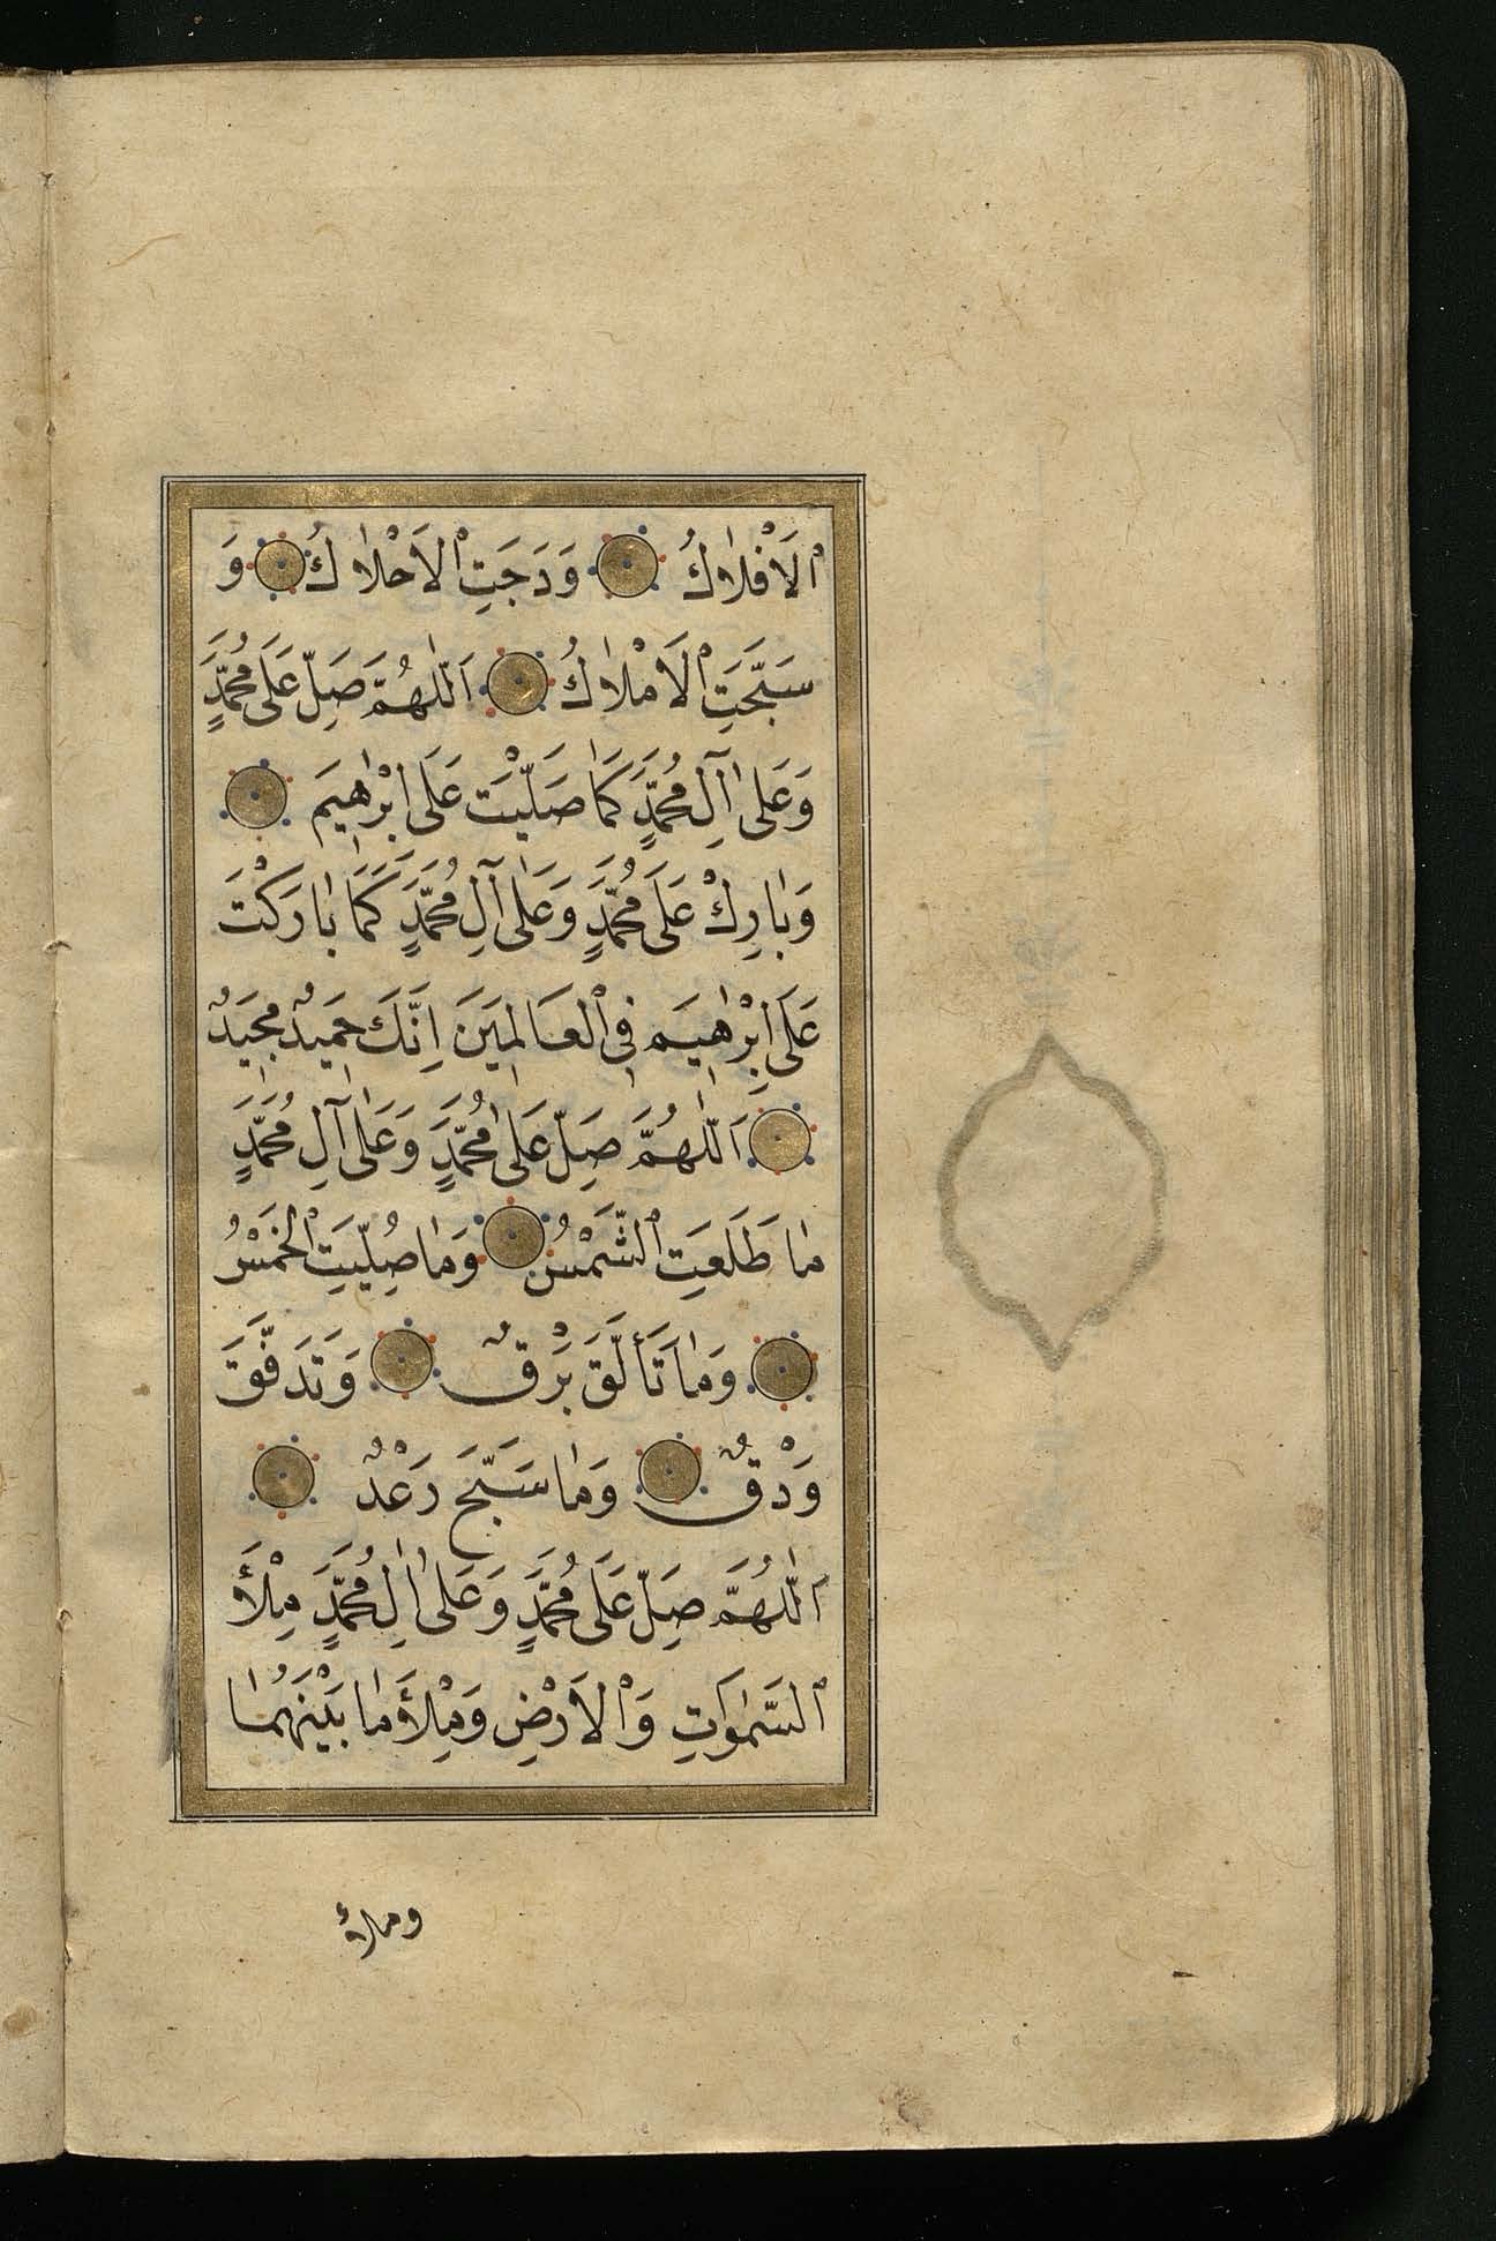 ٱلْاَفْلَاكُ وَدَجَتِ ٱلْاَحْلَاكُ وَ
سَبَّحَتِ ٱلْاَمْلَاكُ اَللّٰهُمَّ صَلِّ عَلَى مُحَمَّدٍ
وَعَلٰى اٰلِ مُحَمَّدٍ كَمَا صَلَّيْتَ عَلَى اِبْرٰهِيمَ
وَبَارِكْ عَلَى مُحَمَّدٍ وَعَلٰى اٰلِ مُحَمَّدٍ كَمَا بَارَكْتَ
عَلَى اِبْرٰهِيمَ فِى ٱلْعَالَمِينَ اِنَّكَ حَمِيدٌ مَجِيدٌ
اَللّٰهُمَّ صَلِّ عَلٰى مُحَمَّدٍ وَعَلٰى اٰلِ مُحَمَّدٍ
مَا طَلَعَتِ ٱلشَّمْسُ وَمَا صُلِّيَتِ ٱلْخَمْسُ
وَمَا تَأَلَّقَ بَرْقٌ وَتَدَفَّقَ
وَدْقٌ وَمَا سَبَّحَ رَعْدٌ
اَللّٰهُمَّ صَلِّ عَلَى مُحَمَّدٍ وَعَلٰى اٰلِ مُحَمَّدٍ مِلْأَ
ٱلسَّمٰوَاتِ وَٱلْاَرْضِ وَمِلْأَ مَا بَيْنَهُمَا
وملأ